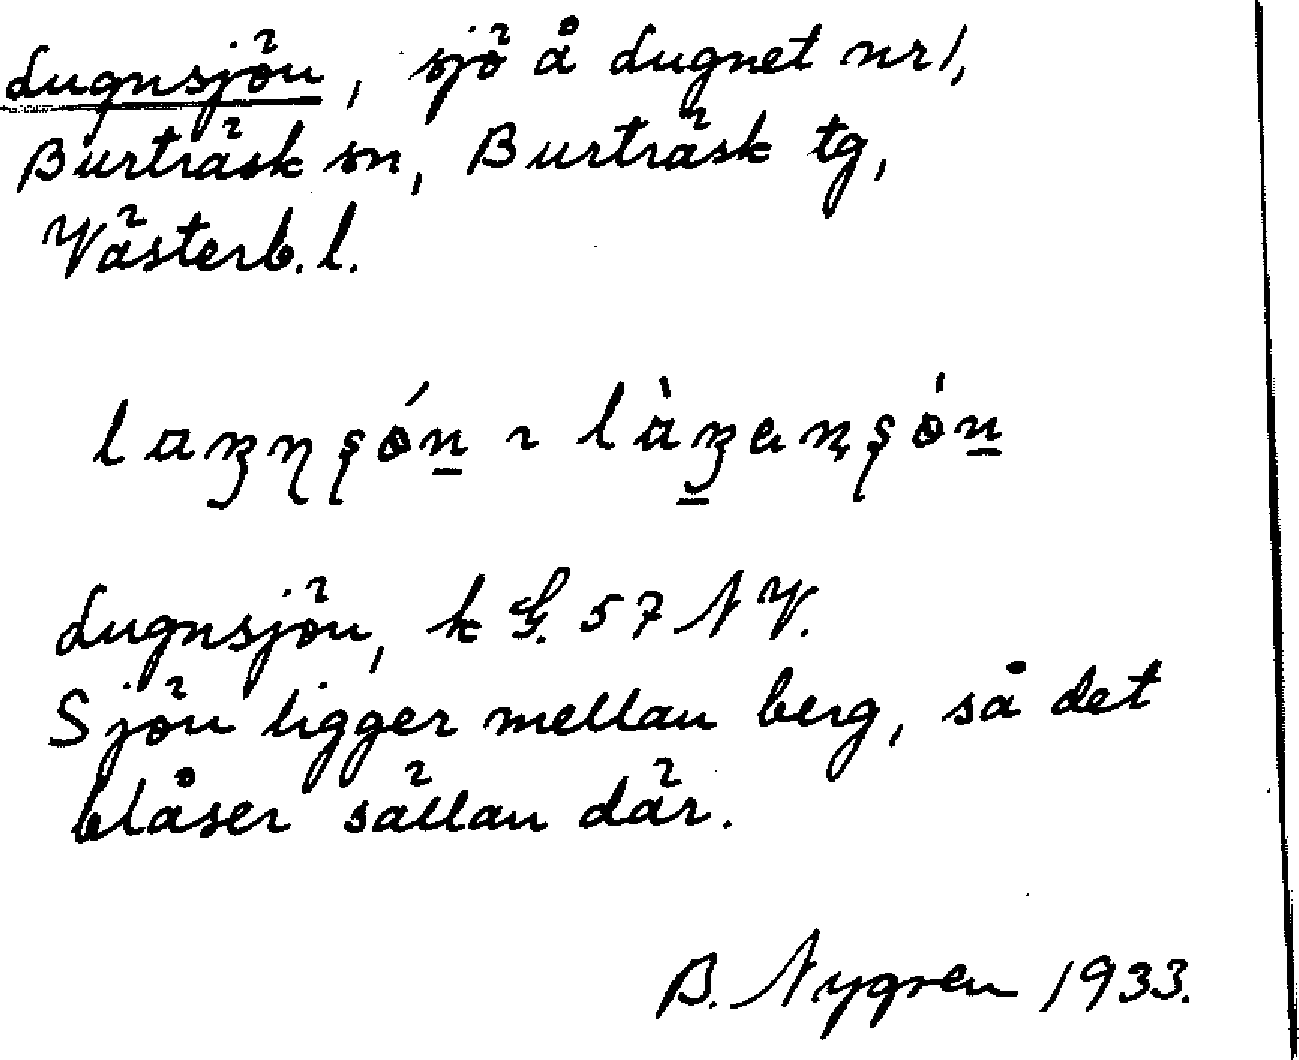 Lugnsjön, sjö å Lugnet nr 1,
Burträsk sn, Burträsk tg,
Västerb. l.
Lugnsjön, k G. 57 NV.
Sjön ligger mellan berg, så det
blåser sällan där.
B. Nygren 1933.